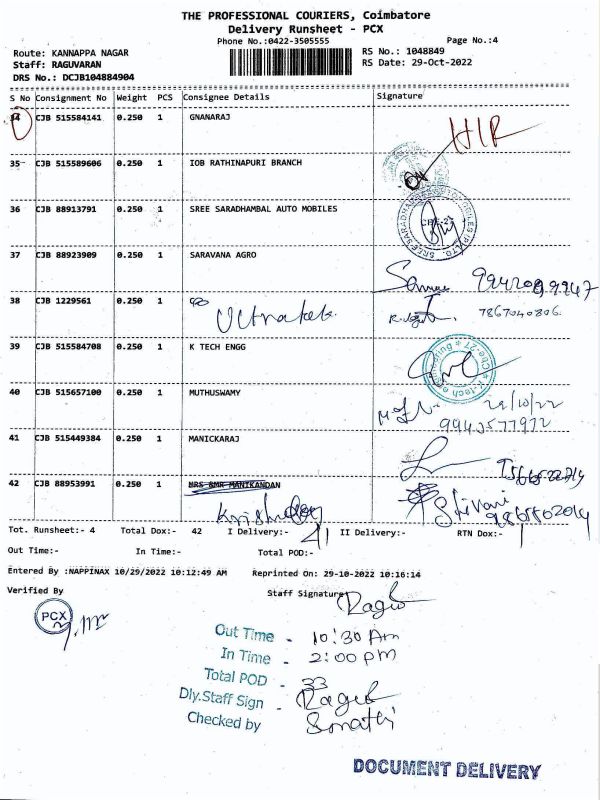 THE PROFESSIONAL COURIERS, Coimbatore
Delivery Runsheet - PCX
Phone No.:0422-3505555 Page No.:4
Route: KANNAPPA NAGAR RS No.: 1048849
Staff: RAGUVARAN RS Date: 29-Oct-2022
DRS No.: DCJB104884904
S No Consignment No Weight PCS Consignee Details Signature
34 CJB 515584141 0.250 1 GNANARAJ
35 CJB 515589606 0.250 1 IOB RATHINAPURI BRANCH
36 CJB 88913791 0.250 1 SREE SARADHAMBAL AUTO MOBILES
37 CJB 88923909 0.250 1 SARAVANA AGRO
38 CJB 1229561 0.250 1 Ultratek. 7867040806.
39 CJB 515584708 0.250 1 K TECH ENGG
40 CJB 515657100 0.250 1 MUTHUSWAMY 29/10/22
9943577972
41 CJB 515449384 0.250 1 MANICKARAJ
42 CJB 88953991 0.250 1 MRS BMR MANIKANDAN Shivani
Tot. Runsheet:- 4 Total Dox:- 42 I Delivery:- 41 II Delivery:- RTN Dox:- 1
Out Time:- In Time:- Total POD:-
Entered By :NAPPINAX 10/29/2022 10:12:49 AM Reprinted On: 29-10-2022 10:16:14
Verified By Staff Signature Ragu
PCX
Out Time - 10:30 Am
In Time - 2:00 pm
Total POD - 33
Dly.Staff Sign - Ragu
Checked by Sonathi
DOCUMENT DELIVERY